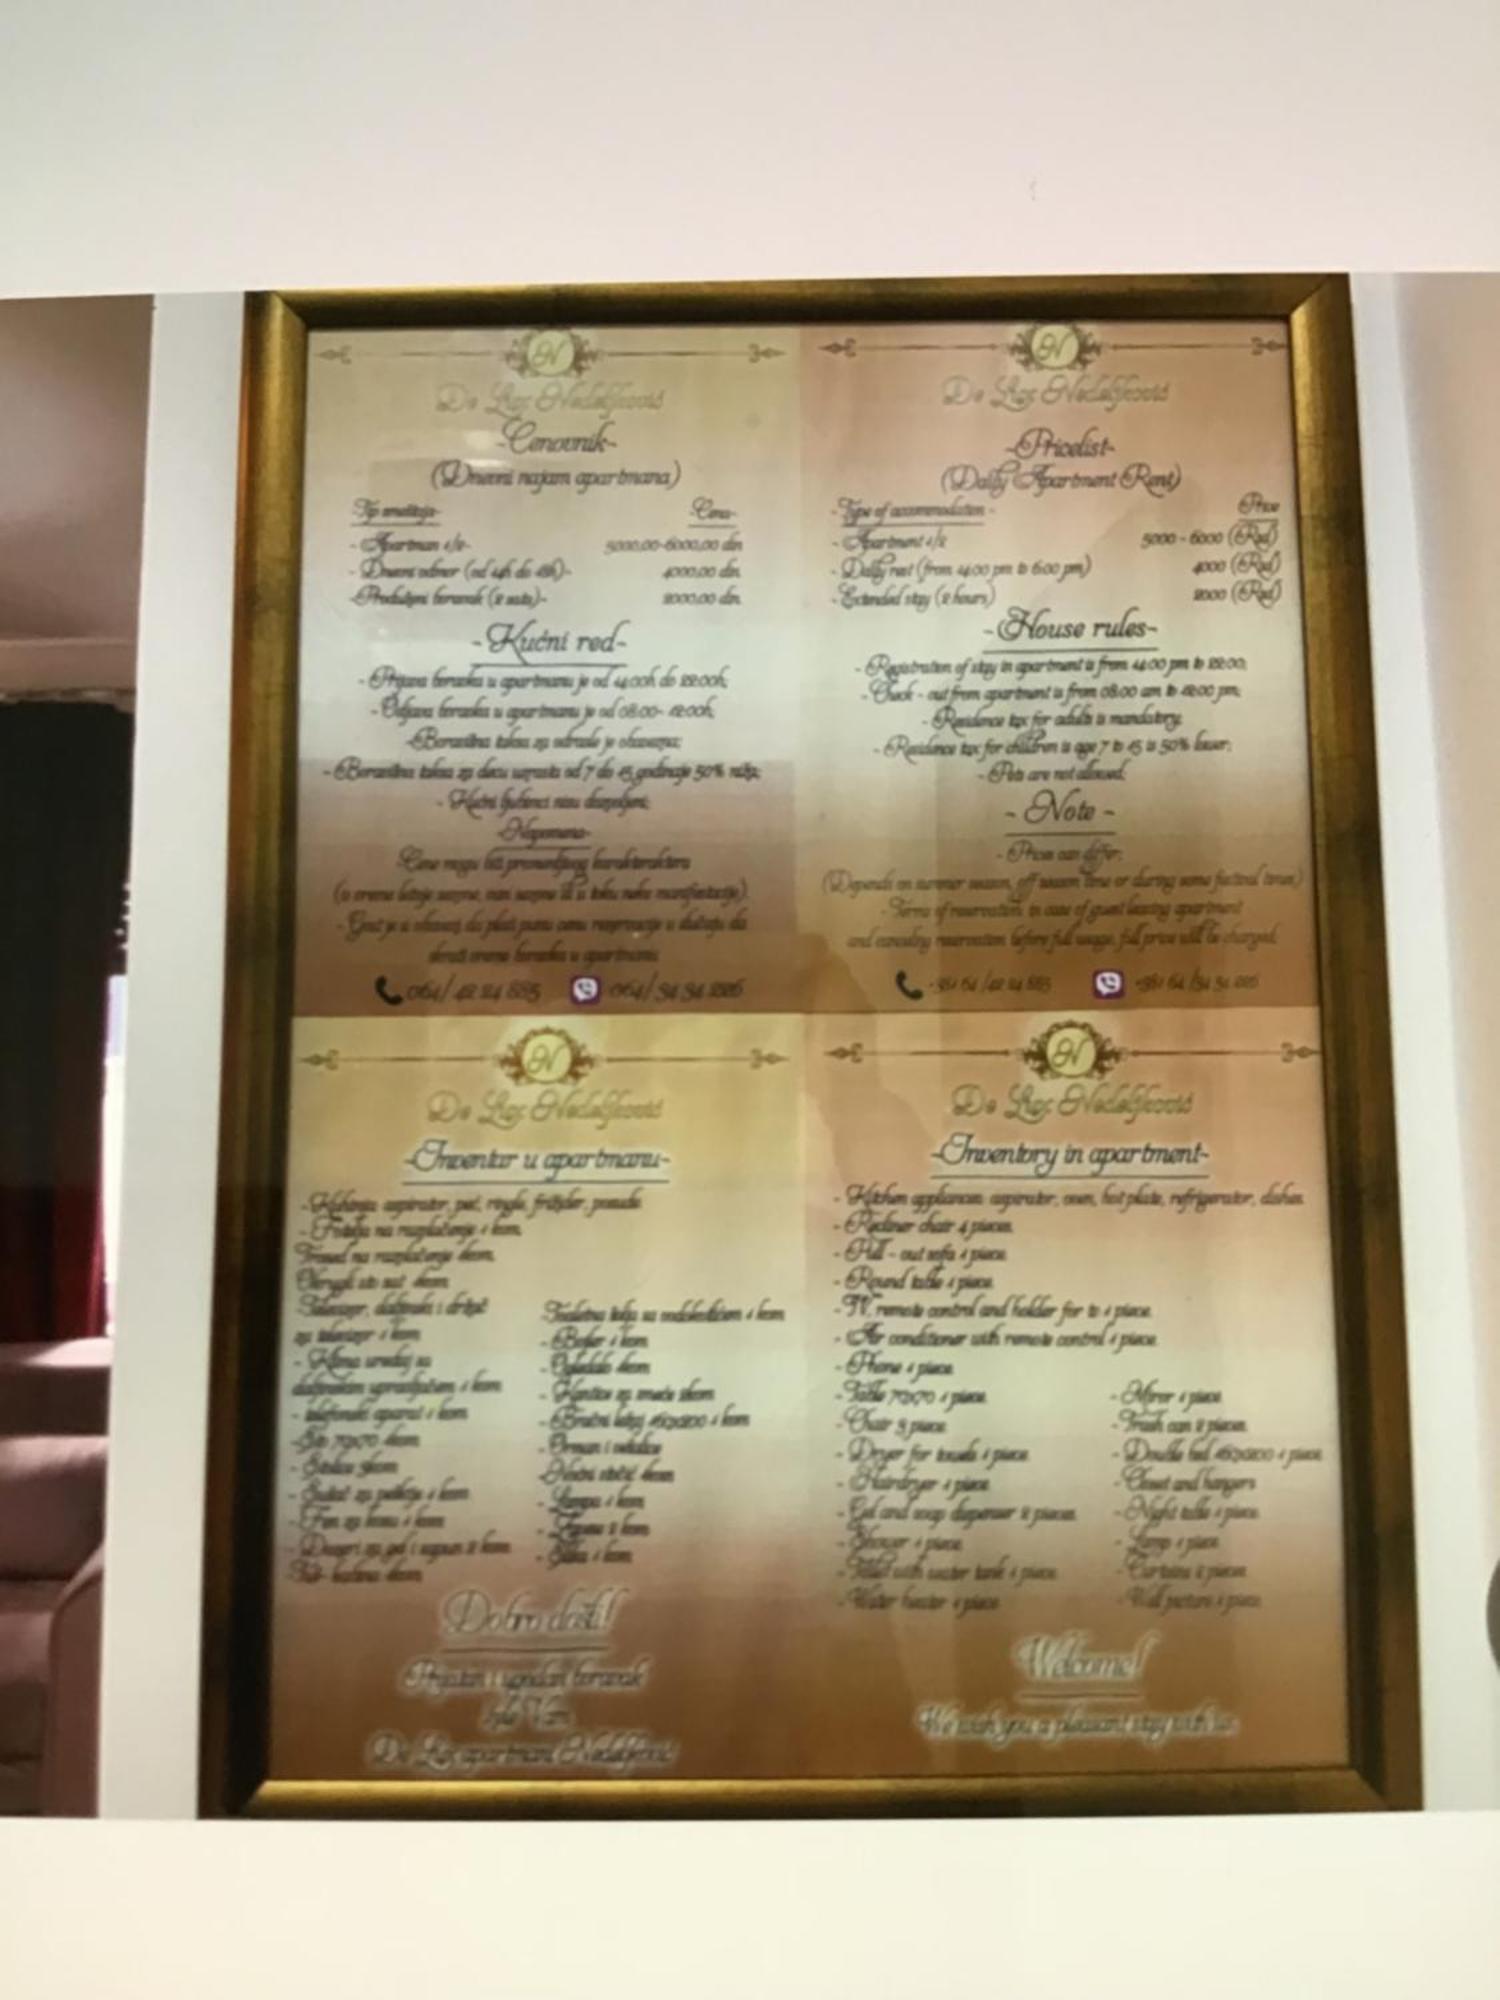 N
De Lux Nedeljković
-Cenovnik-
(Dnevni najam apartmana)
Tip smeštaja- -Cena-
- Apartman 1/2- 5000,00-6000,00 din
- Dnevni odmor (od 14h do 18h)- 4000,00 din
-Produženi boravak (2 sata)- 2000,00 din
-Kućni red-
- Prijava boravka u apartmanu je od 14:00h do 22:00h;
- Odjava boravka u apartmanu je od 08:00- 12:00h;
-Boravišna taksa za odrasle je obavezna;
- Boravišna taksa za decu uzrasta od 7 do 15 godina je 50% niža;
- Kućni ljubimci nisu dozvoljeni;
-Napomena-
Cene mogu biti promenljivog karaktera
(u vreme letnje sezone, van sezone ili u toku neke manifestacije).
- Gost je u obavezi da plati punu cenu rezervacije u slučaju da
skrati vreme boravka u apartmanu
064/ 42 24 885 064/ 34 34 226
N
De Lux Nedeljković
-Pricelist-
(Daily Apartment Rent)
- Type of accommodation - Price
- Apartment 1/2 5000 - 6000 (Rsd)
- Daily rest (from 14:00 pm to 6:00 pm) 4000 (Rsd)
- Extended stay (2 hours) 2000 (Rsd)
-House rules-
- Registration of stay in apartment is from 14:00 pm to 22:00;
- Check - out from apartment is from 08:00 am to 12:00 pm;
- Residence tax for adults is mandatory;
- Residence tax for children is age 7 to 15 is 50% lower;
- Pets are not allowed;
- Note -
- Prices can differ;
(Depends on summer season, off season time or during some festival times)
- Terms of reservation: in case of guest leaving apartment
and canceling reservation before full usage, full price will be charged;
N
De Lux Nedeljković
-Inventar u apartmanu-
- Kuhinja: aspirator, peć, ringla, frižider, posuđe
- Fotelja na razvlačenje 1 kom,
Trosed na razvlačenje 1kom,
Okrugli sto 1kom
Televizor, daljinski i držač
za televizor 1 kom
- Klima uređaj sa
daljinskim upravljačem 1 kom
- telefonski aparat 1 kom
-Sto 70x70 1kom
- Stolice 3kom
- Sušač za peškire 1 kom
- Fen za kosu 1 kom
- Dozeri za gel i sapun 2 kom
Tuš- kabina 1kom
-Toaletna šolja sa vodokotlićem 1 kom
- Bojler 1 kom
- Ogledalo 1kom
- Kantice za smeće 2kom
- Bračni ležaj 160x200 1 kom
- Orman i vešalice
-Noćni stočić 1kom
- Lampa 1 kom
- Zavese 2 kom
- Slika 1 kom
Dobro došli!
Prijatan i ugodan boravak
žele Vam
De Lux apartmani Nedeljković
N
De Lux Nedeljković
-Inventory in apartment-
- Kitchen appliances: aspirator, oven, hot plate, refrigerator, dishes
- Recliner chair 1 pieces,
- Pull - out sofa 1 piece
- Round table 1 piece
- TV, remote control and holder for tv 1 piece
- Air conditioner with remote control 1 piece
- Phone 1 piece
- Table 70x70 1 piece
- Chair 3 piece
- Dryer for towels 1 piece
- Hairdryer 1 piece
- Gel and soap dispenser 2 pieces
- Shower 1 piece
- Toilet with water tank 1 piece
- Water heater 1 piece
- Mirror 1 piece
- Trash can 2 pieces
- Double bed 160x200 1 piece
- Closet and hangers
- Night table 1 piece
- Lamp 1 piece
- Curtains 2 pieces
- Wall picture 1 piece
Welcome!
We wish you a pleasant stay with us